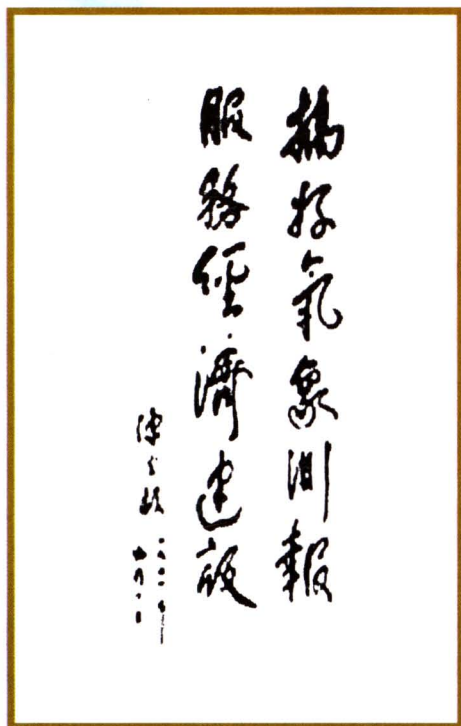 搞好氣象測報
服務經濟建設